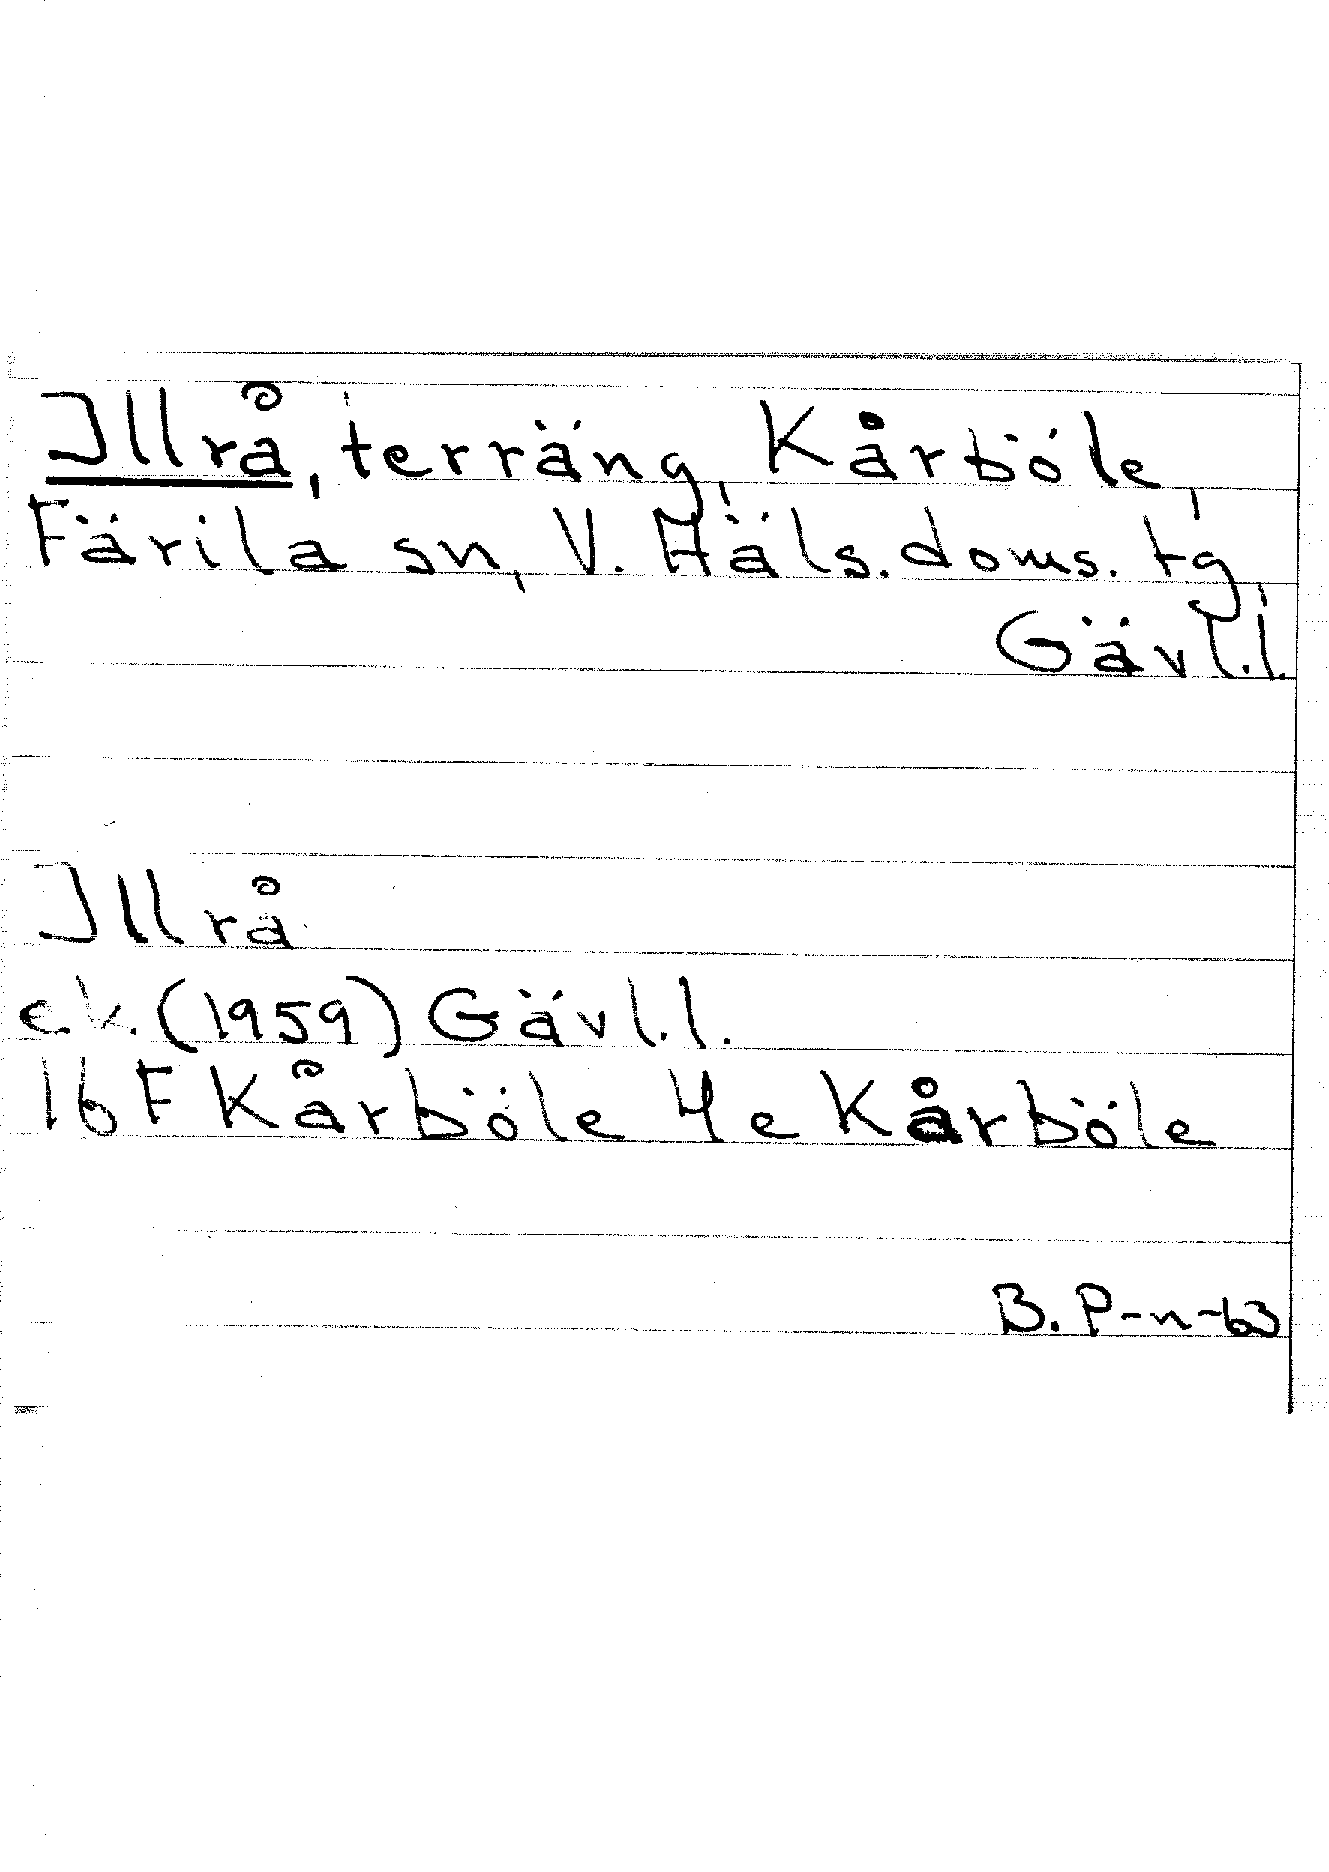 Illrå, terräng, Kårböle,
Färila sn, V. Häls. doms. tg,
Gävl.l.
Illrå
ek. (1959) Gävl.l.
16F Kårböle 4e Kårböle
B. P-n-63